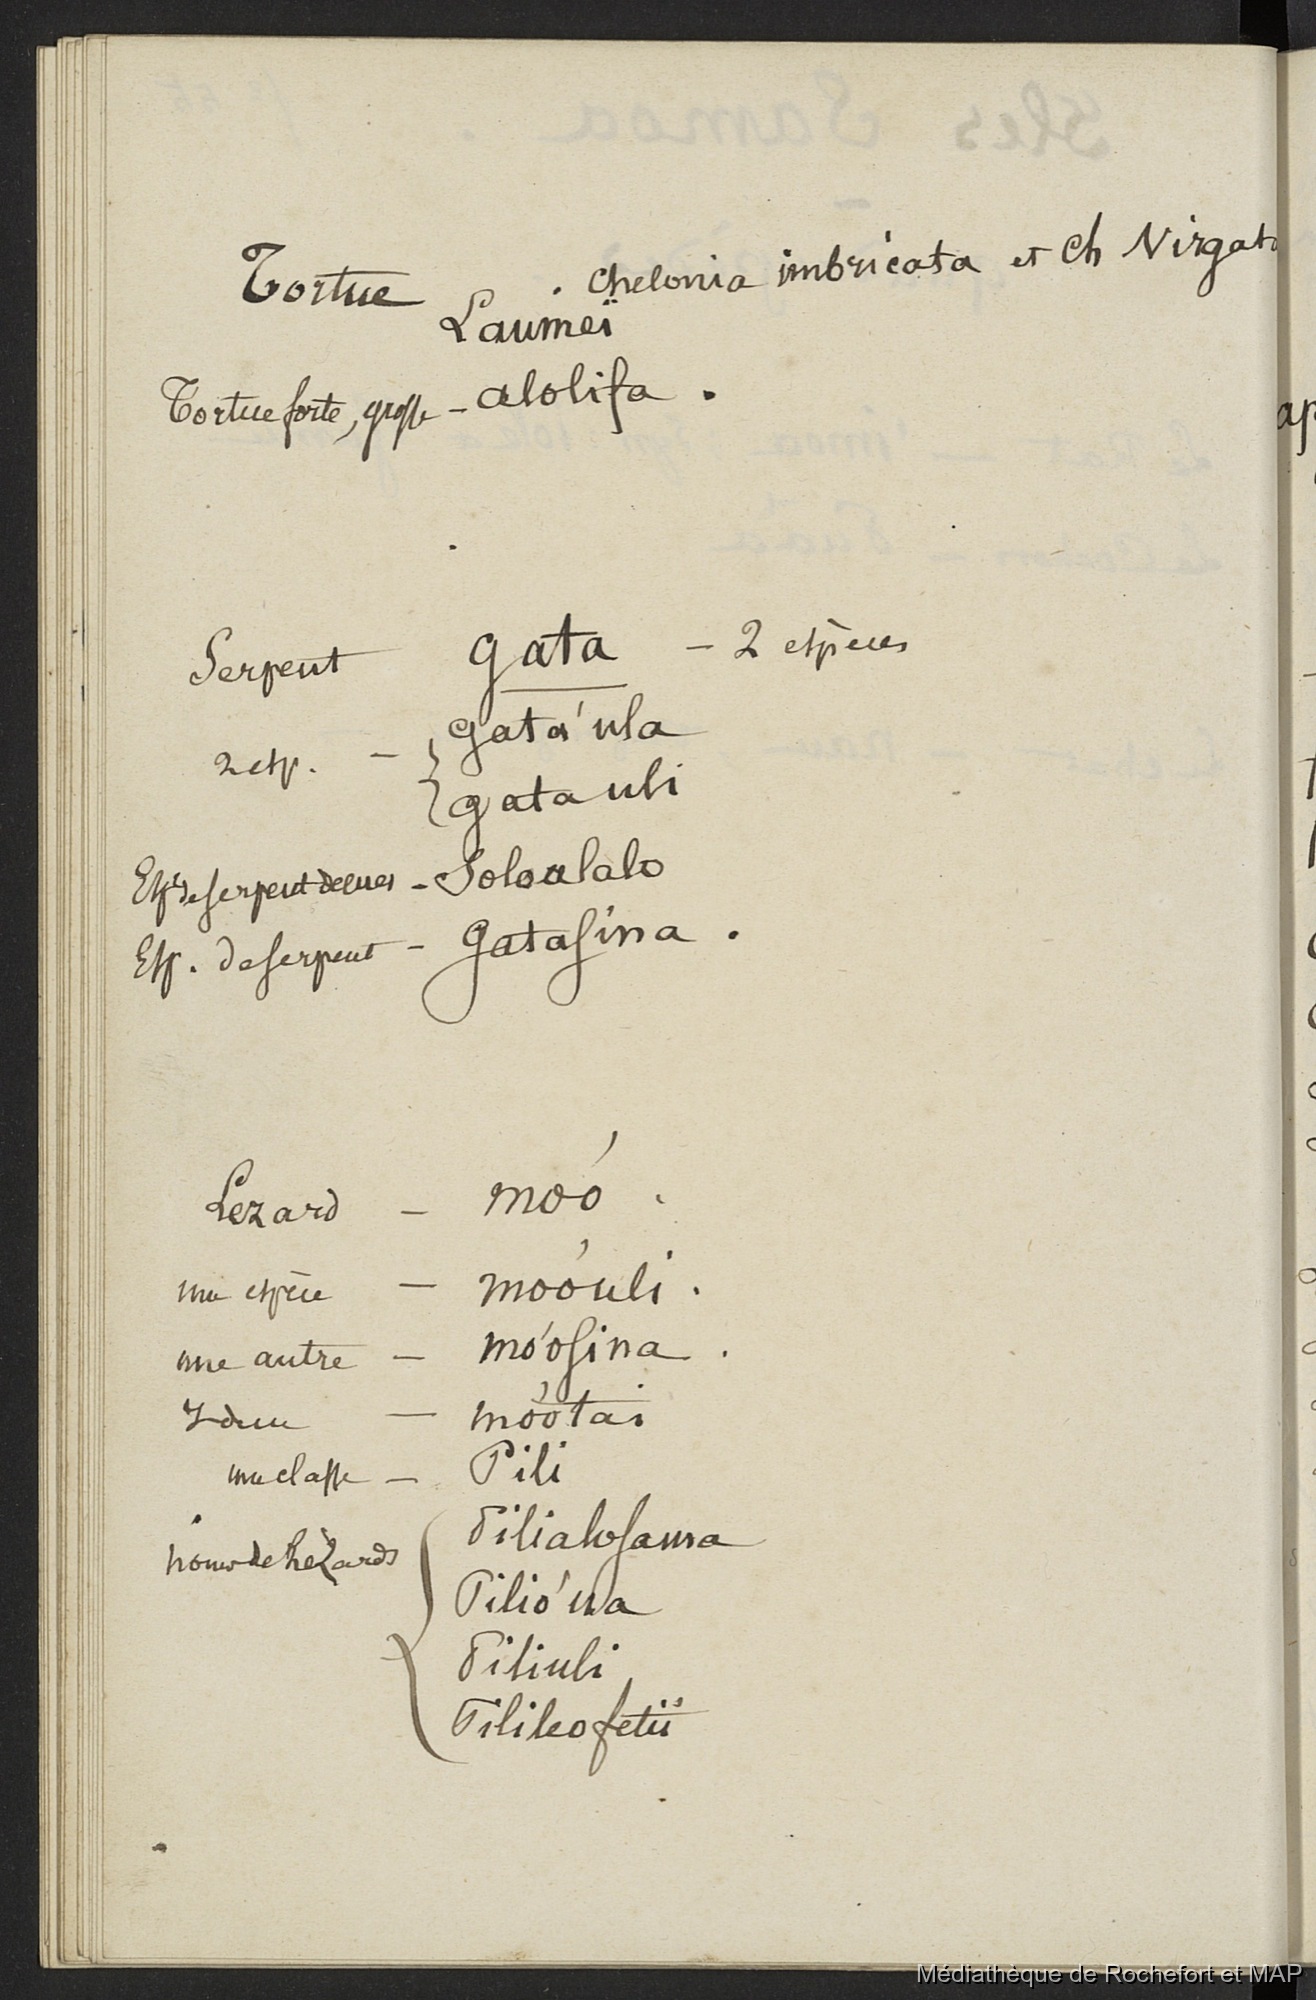 Tortue . Chelonia imbricata et Ch Virgata
Laumeï
Tortue forte, grosse - alolifa .
Serpent gata - 2 espèces
2 esp. - { gata'ula
{ gata uli
Esp. de serpent de mer - Soloalalo
Esp. de serpent - gatasina .
Lezard - moó .
une espèce - moóuli .
une autre - mo'osina .
Idem - moótai
une classe - Pili
noms de Lèzards { Pilialosama
Pilió'ua
Piliuli
Pilileofetii
Médiathèque de Rochefort et MAP